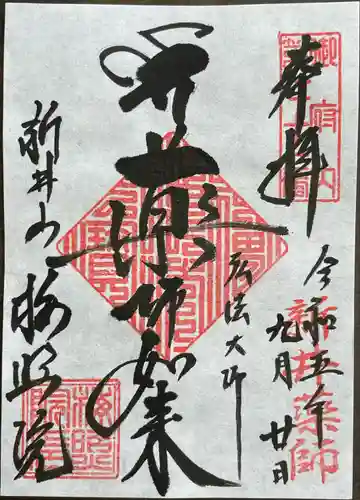 奉拝
御府内
令和五年
九月廿日
新井薬師
弘法大師
薬師如来
新井山梅照院
梅照
院